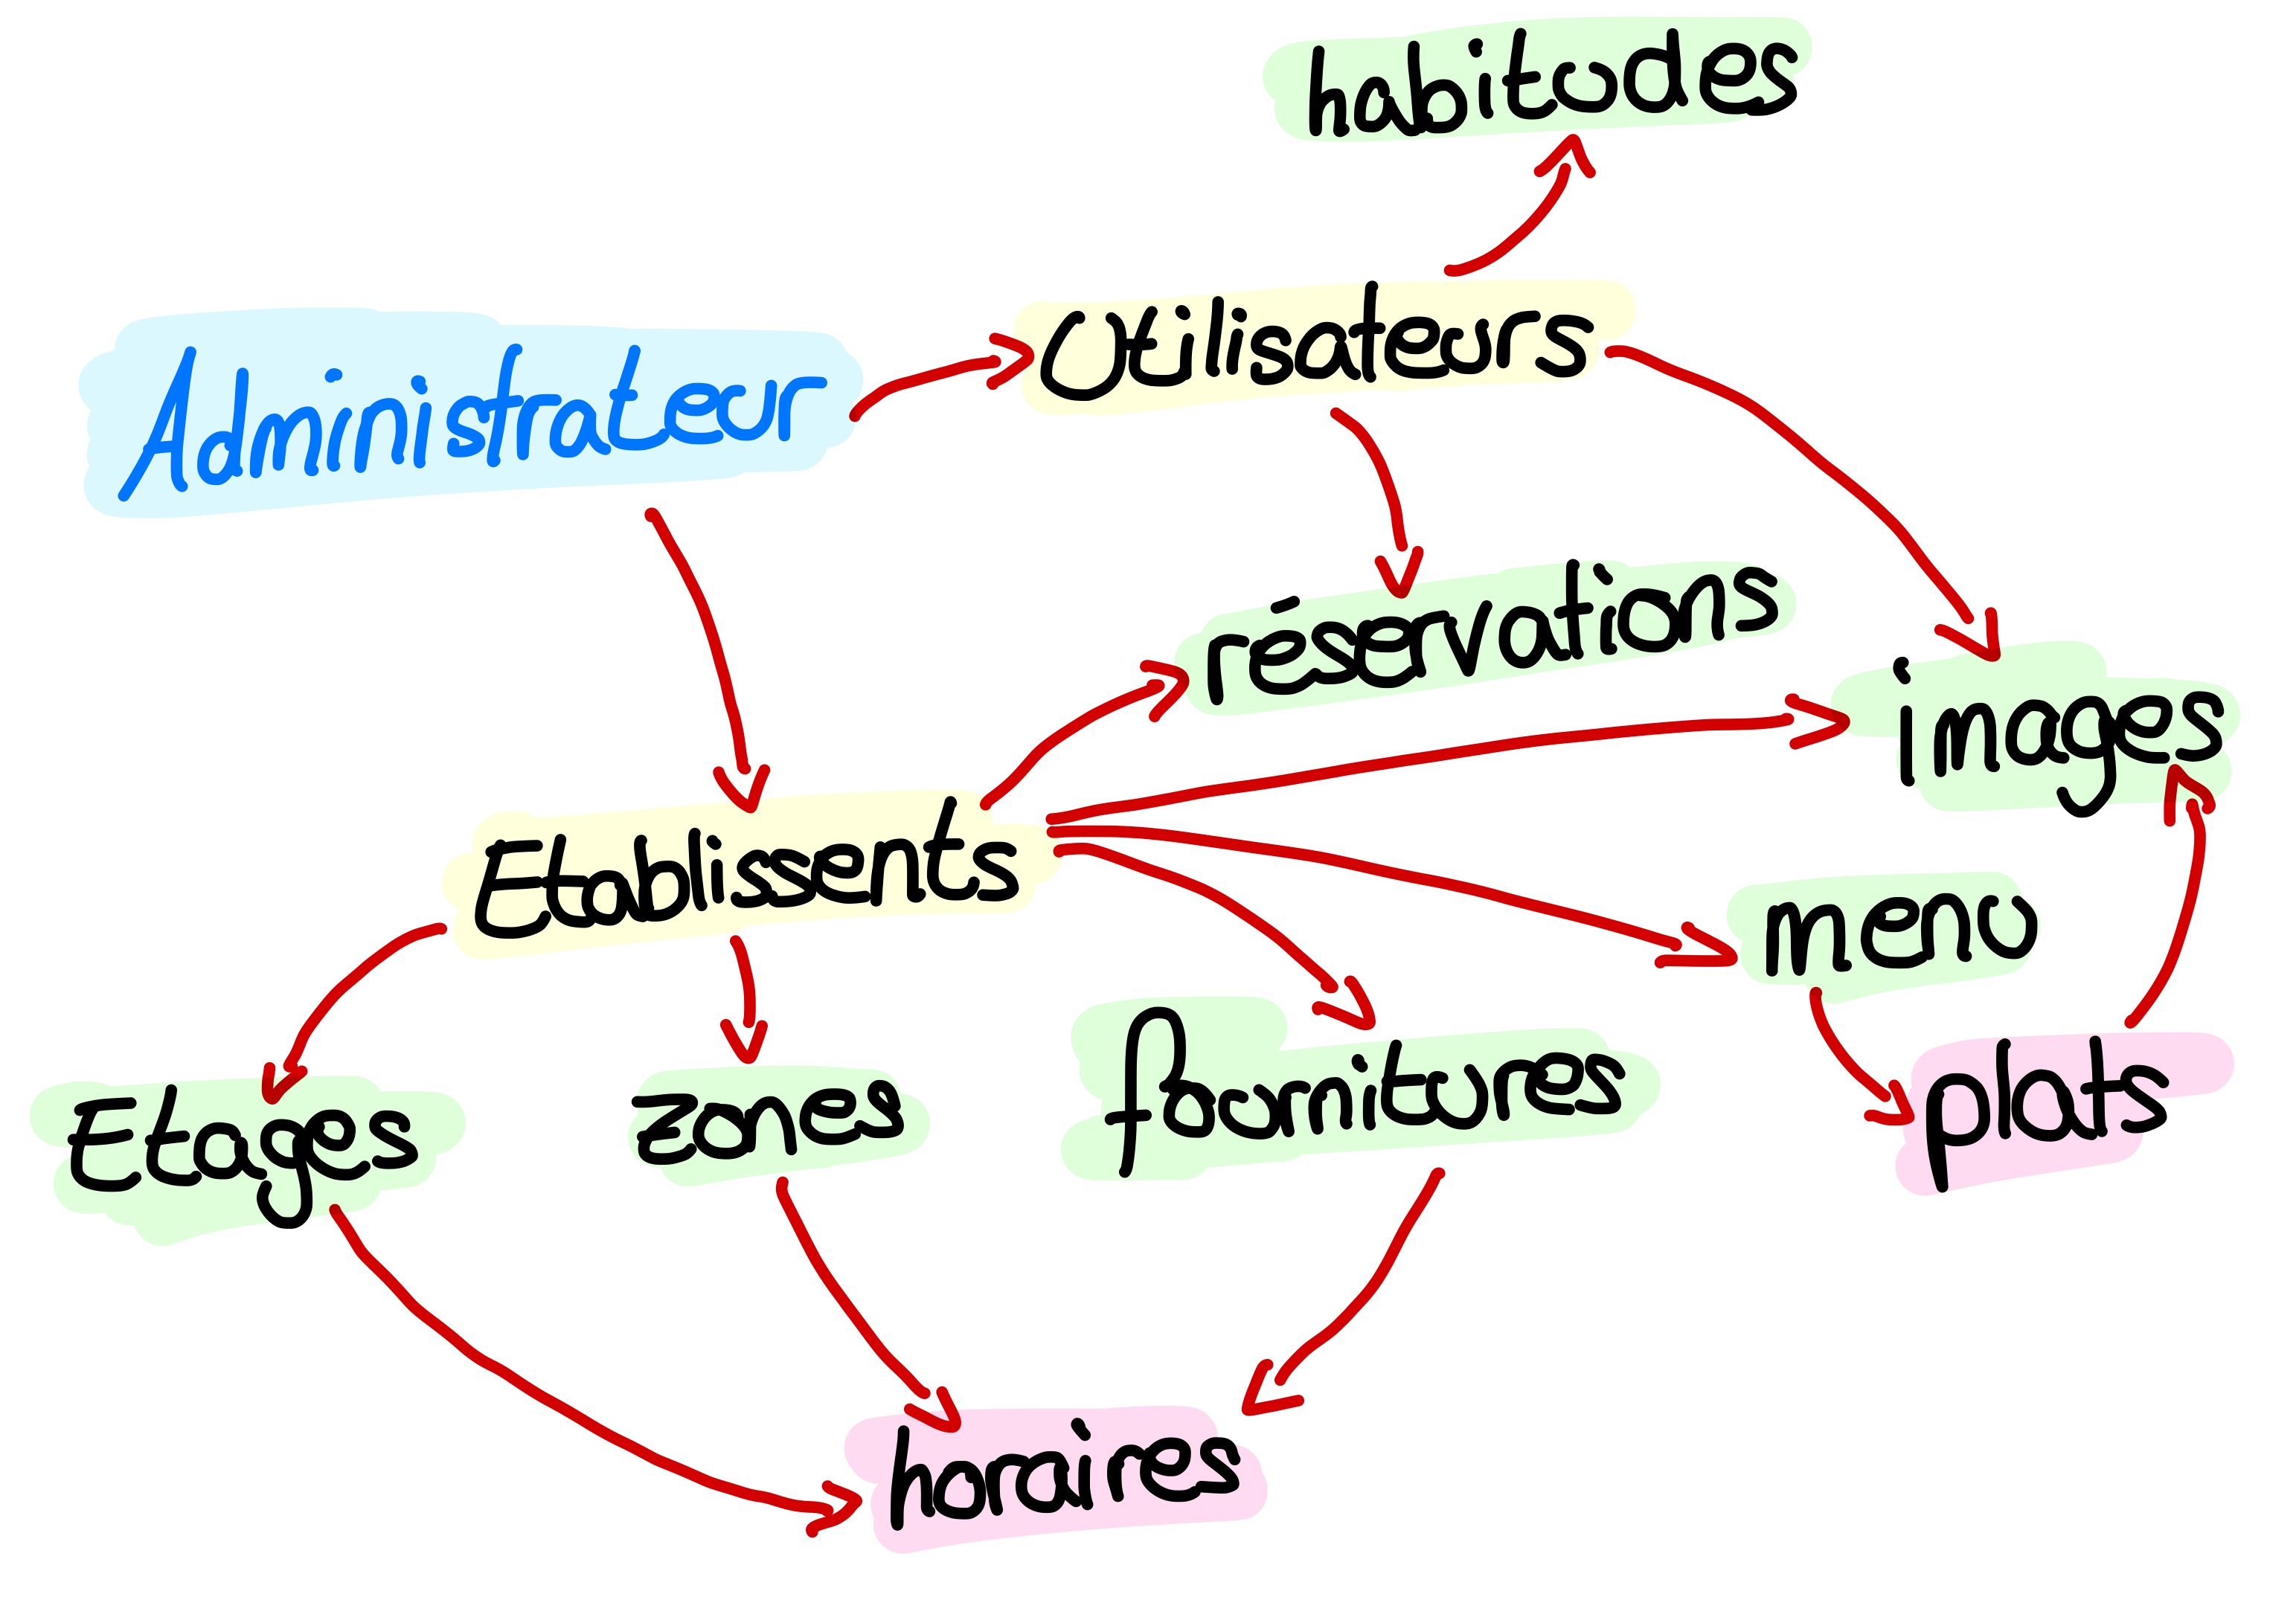 habitudes
Utilisateurs
Administrateur
réservations
images
Etablissents
menu
Etages
zones
fournitures
plats
horaires